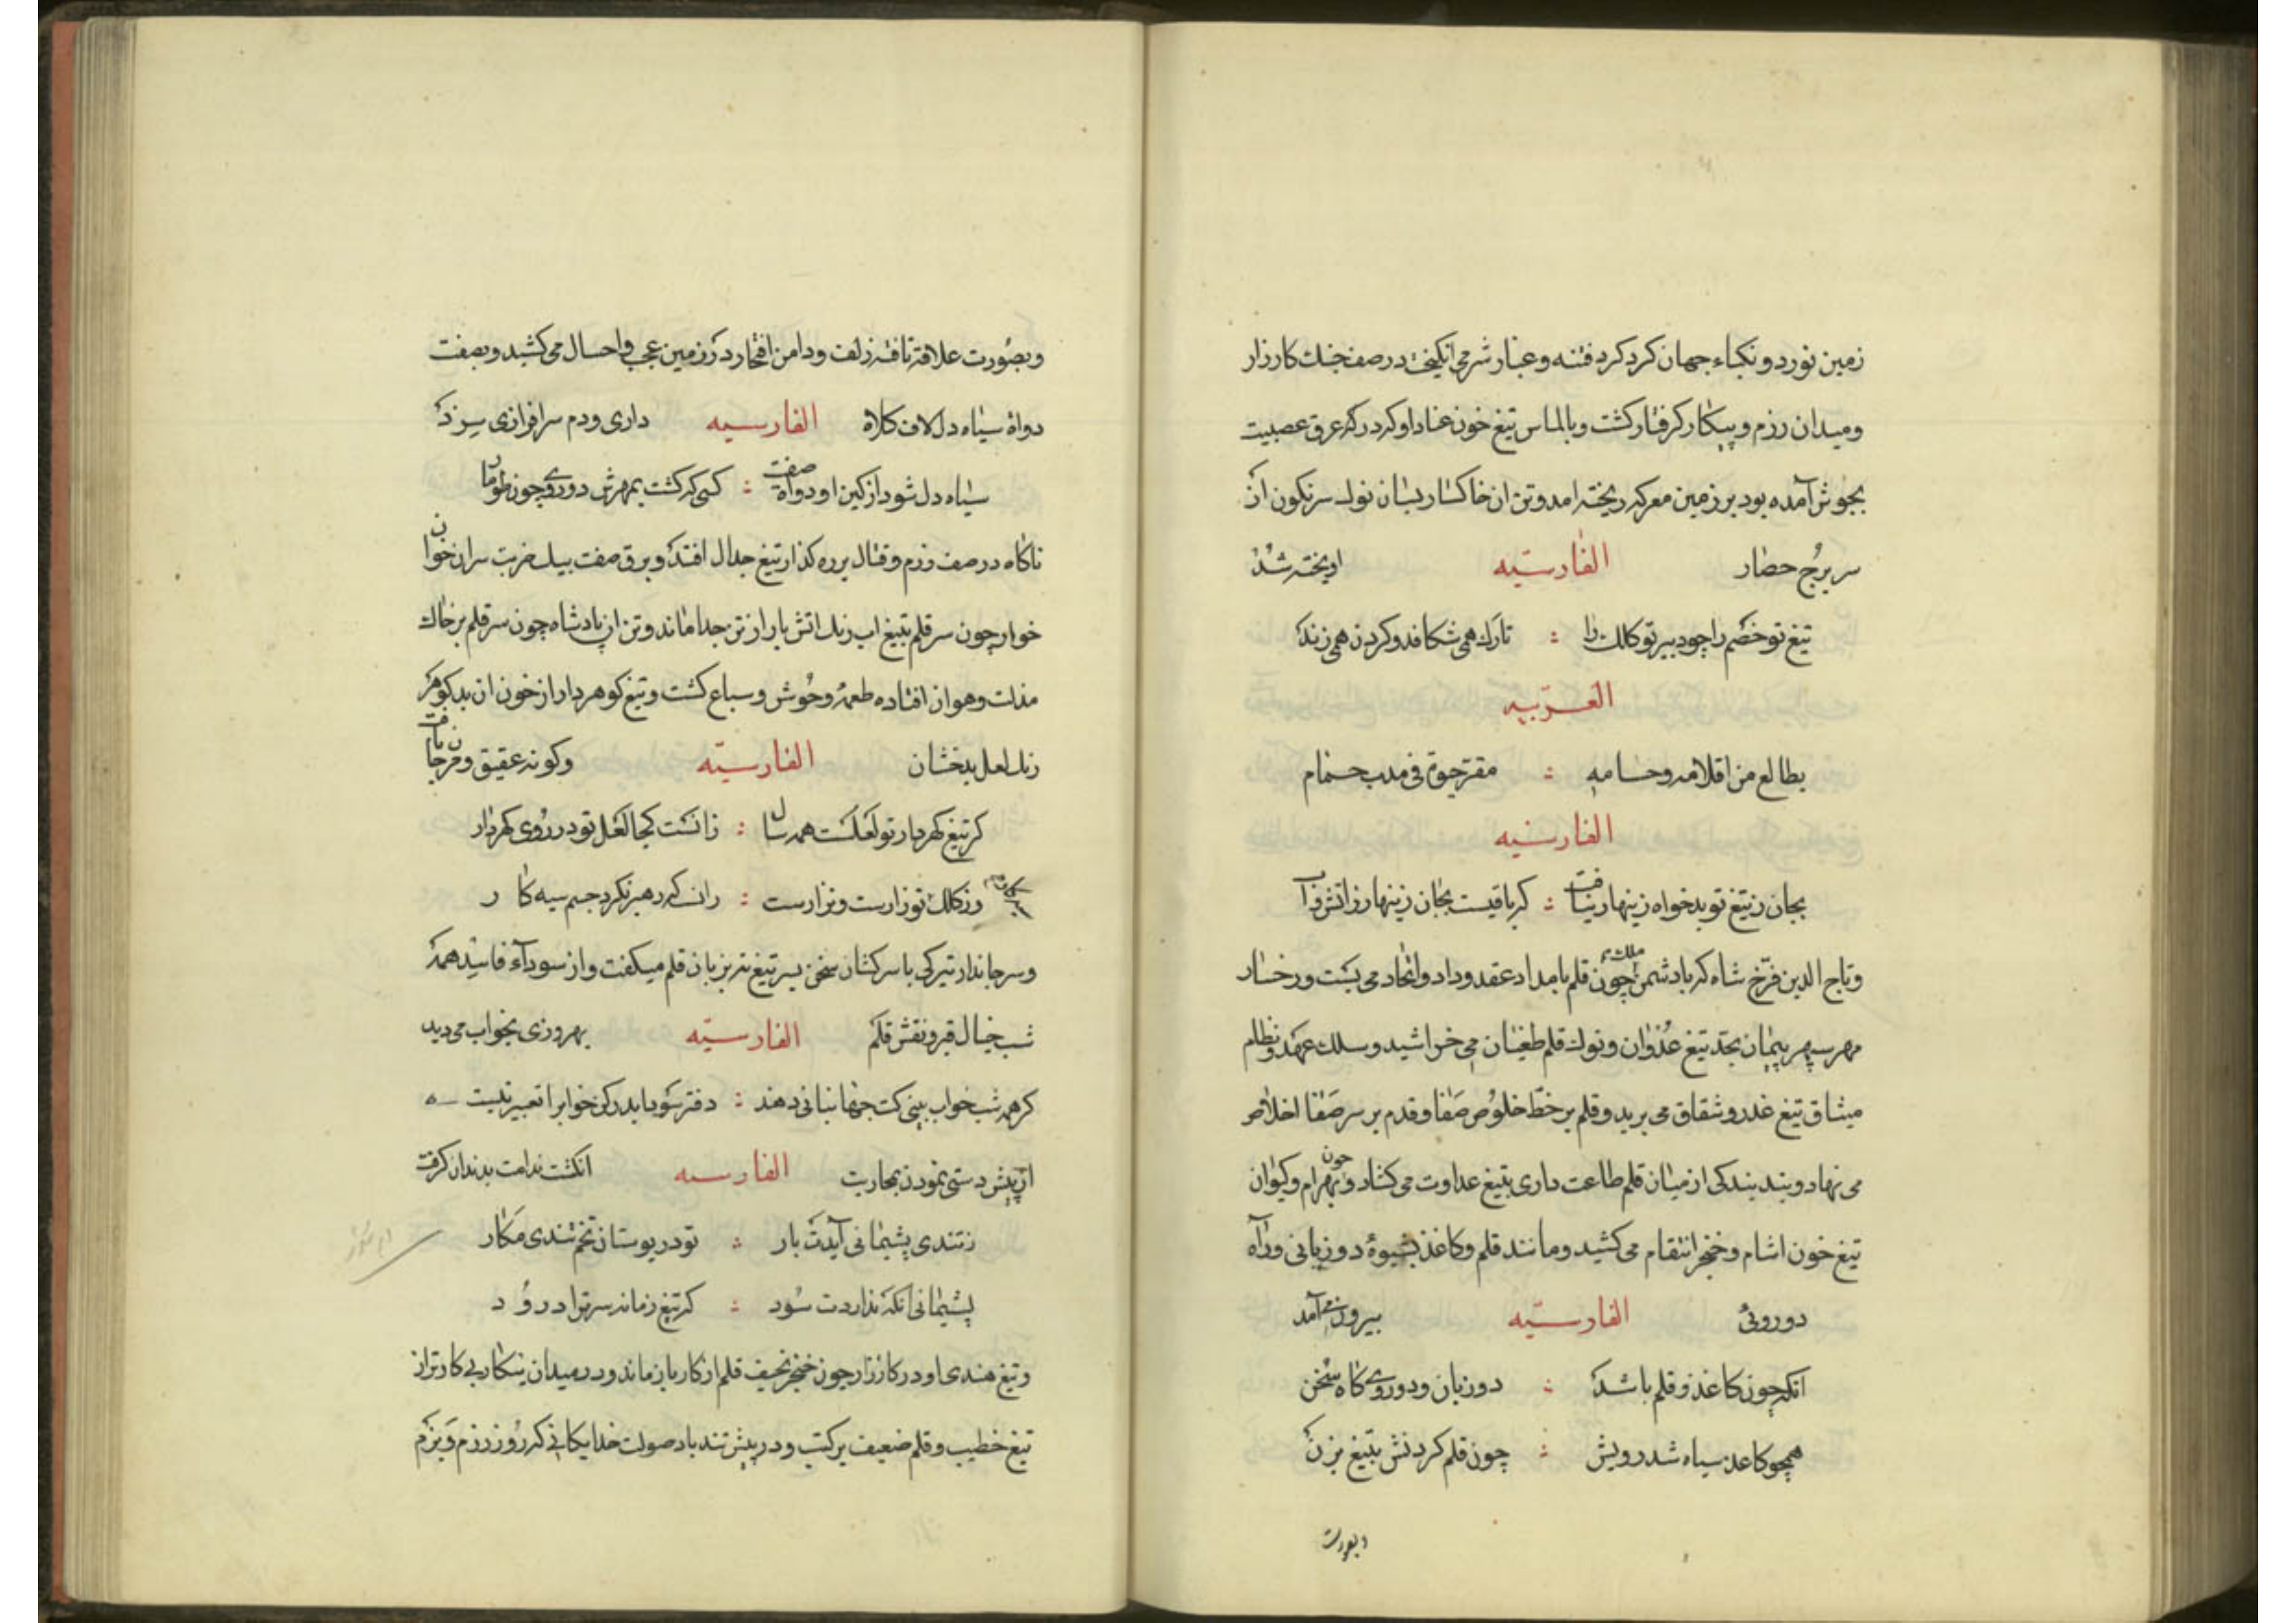 زمین نورد و نکباء جهان کرد کرد فتنه و غبار شر می انکیخت در صف جنك کارزار
و میدان رزم و پیکار کرفتار کشت و بالماس تیغ خون عناد او که در رکه عرق عصبیت
بجوش آمده بود بر زمین معرکه ریخته امد و تن ان خاکسار بسان نوك سرنکون از
سر برج حصار الفارسیّه اویخته شد
تیغ تو خصم را چو دبیر تو کلك را : تارك همی شکافد و کردن همی زند
العربیه
بطالع من اقلامه وحسامه : مقر حیوة فی مدب حمام
الفارسیه
بجان ز تیغ تو بدخواه زینهار نیافت : که یافتست بجان زینهار ز اتش و آب
و تاج الدین فرّخ شاه که با دشمن ملك چون قلم با مداد عقد وداد و اتحاد می بست و رخسار
مهر سپهر پیمان بحد تیغ عدوان و نوك قلم طغیان می خراشید و سلك عهد و نظام
میثاق تیغ غدر و شقاق می برید و قلم بر خطّ خلوص صفا و قدم بر سر صفا اخلاص
می نهاد و بند بندکی از میان قلم طاعت داری بتیغ عداوت می کشاد و چون بهرام و کیوان
تیغ خون اشام و خنجر انتقام می کشید و مانند قلم و کاغذ بشیوۀ دو زبانی و راه
دوروئی الفارسیّه بیرون می آمد
انکه چون کاغذ و قلم باشد : دو زبان و دوروی کاه سخن
همچو کاغذ سیاه شد رویش : چون قلم کردنش بتیغ بزن
و بصورت
و بصورت علاقه تافته زلف و دامن افتخار در زمین عجب و احسال می کشید و بصفت
دواة سیاه دل لاف کلاه الفارسیه داری و دم سرافرازی میزد
سیاه دل شود از کین او دواة صفت : کسی که کشت بمهرش دوروی چون طومار
ناکاه در صف رزم و قتال بر ره کذار تیغ جدال افتد و برق صفت بیك ضربت سران خوان
خوار چون سر قلم بتیغ اب رنك اتش بار از تن جدا ماند و تن ان پادشاه چون سر قلم بر خاك
مذلت و هوان افتاده طعمۀ وحوش و سباع کشت و تیغ کوهردار از خون ان بدکوهر
رنك لعل بدخشان الفارسیّه و کونه عقیق و مرجان یافت
کر تیغ کهردار تو لعلست همه سال : زانست کجا لعل تو در روی کهردار
ور کلك تو زارست و نزارست : زانست که رهبر نکرد جسم سیه کار
و سرجاندار ترکی با سرکشان سخن بسر تیغ نه بزبان قلم میکفت و از سوداء فاسد همه
شب خیال قبر و نقش قلم الفارسیّه بهروزی بخواب می دید
کر همه شب خواب بینی کت جهانبانی دهند : دفتر سودا بدر کین خواب را تعبیر نیست
از پیش دستی نمودن بمحاربت الفارسیه انکشت ندامت بدندان کرفت
ز تندی پشیمانی آیدت بار : تو در بوستان تخم تندی مکار
پشیمانی انکه نداردت سود : که تیغ زمانه سرترا درود
و تیغ هندی او در کارزار چون خنجر نحیف قلم از کار باز ماند و در میدان پیکار بی کارتر از
تیغ خطیب و قلم ضعیف بر کتب و در پیش تندباد صولت خدایکانی که روز رزم و بزم